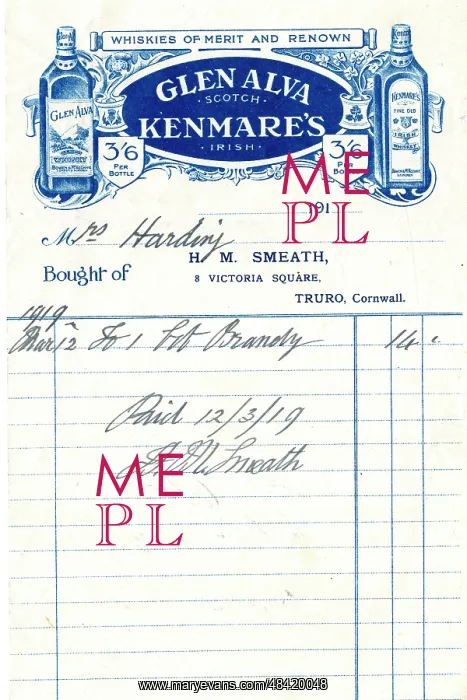 WHISKIES OF MERIT AND RENOWN
GLEN ALVA
· SCOTCH ·
KENMARE'S
· IRISH ·
GLEN ALVA
KENMARE'S
FINE OLD
IRISH
WHISKEY
3/6 PER BOTTLE
3/6 PER
191
Mrs Harding
H. M. SMEATH,
Bought of
8 VICTORIA SQUARE,
TRURO, Cornwall.
1919
Mar 12 To 1 Bot Brandy 14
Paid 12/3/19
H. M. Smeath
ME
PL
ME
PL
www.maryevans.com/48420048